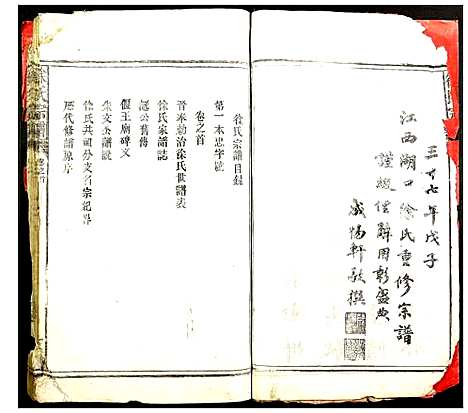 三十七年戊子
江西湖口徐氏重修宗譜
謹綴俚辭用彰盛典
咸惕軒敬撰
徐氏宗譜目錄
第一本忠字號
卷之首
晉米勅治徐氏世譜表
徐氏家譜誌
諶公舊傳
偃王廟碑文
朱文公譜説
徐氏共祖分支名宗紀畧
歷代修譜原序